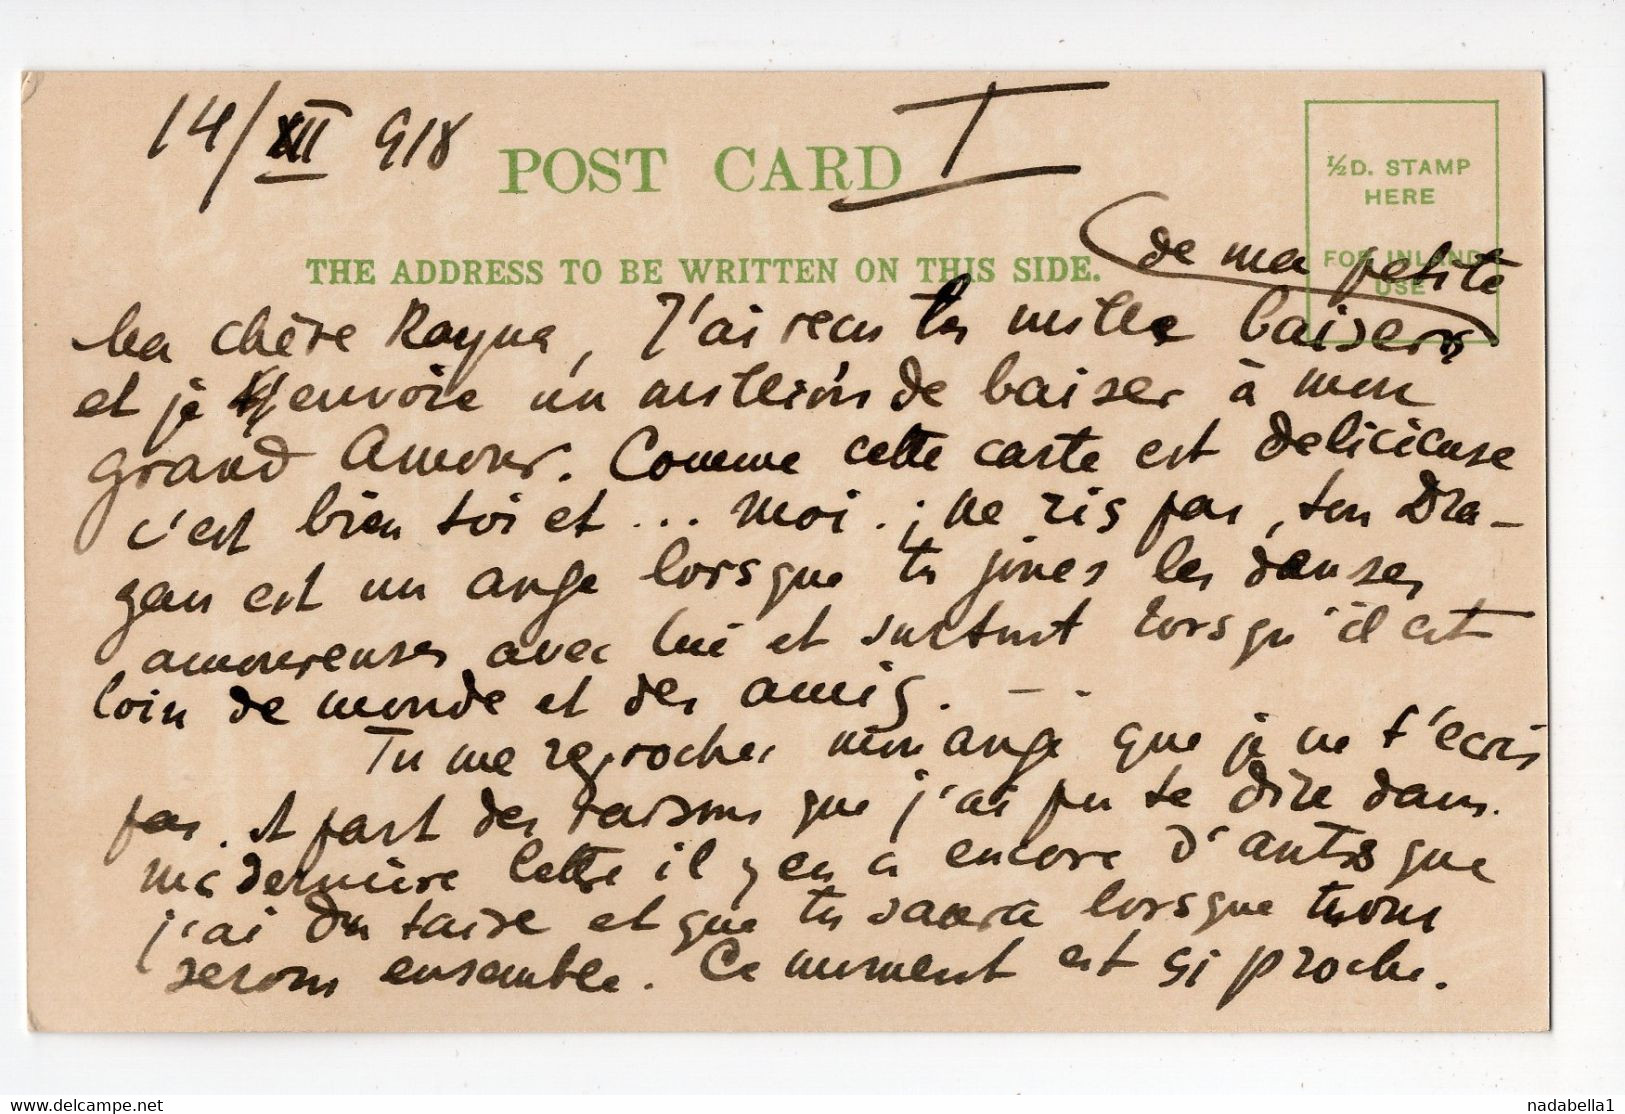 14/XII 918
I
POST CARD
½D. STAMP
HERE
FOR INLAND
USE
THE ADDRESS TO BE WRITTEN ON THIS SIDE.
(de ma petite
Ma chère Rayna, J'ai recu tes mille baisers
et je t'envoie un million de baiser à mon
grand Amour. Comme cette carte est delicieuse
c'est bien toi et ... moi. ; ne ris pas, ton Dra-
gan est un ange lorsque tu joues les danses
amoureuses avec lui et surtout lorsqu'il est
loin de monde et des amis. — -
Tu me reproches mon ange que je ne t'ecris
pas. A part des raisons que j'ai pu te dire dans
ma dernière lettre il y en a encore d'autres que
j'ai du taire et que tu saura lorsque nous
serons ensemble. Ce moment est si proche.
delcampe.net
nadabella1